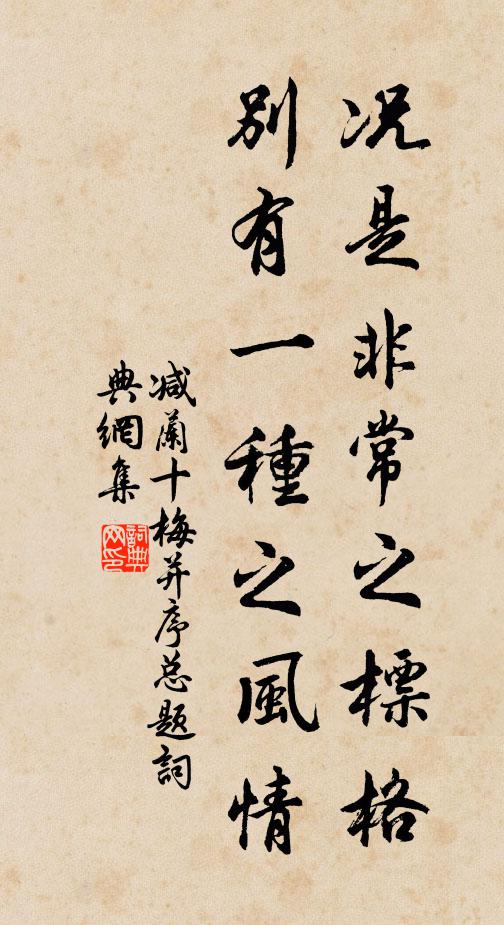 况是非常之標格
別有一種之風情
减蘭十梅并序总题詞
典網集
詞典
网印